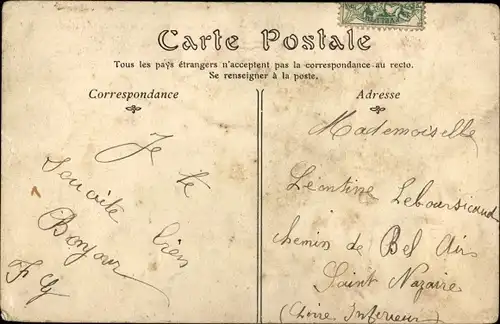 Carte Postale
Tous les pays étrangers n'acceptent pas la correspondance au recto.
Se renseigner à la poste.
Correspondance
Adresse
Je te
souaite bien
Bonjour
Mademoiselle
Léontine Leboursicaud
chemin de Bel Air
Saint Nazaire
(Loire Inferieur)